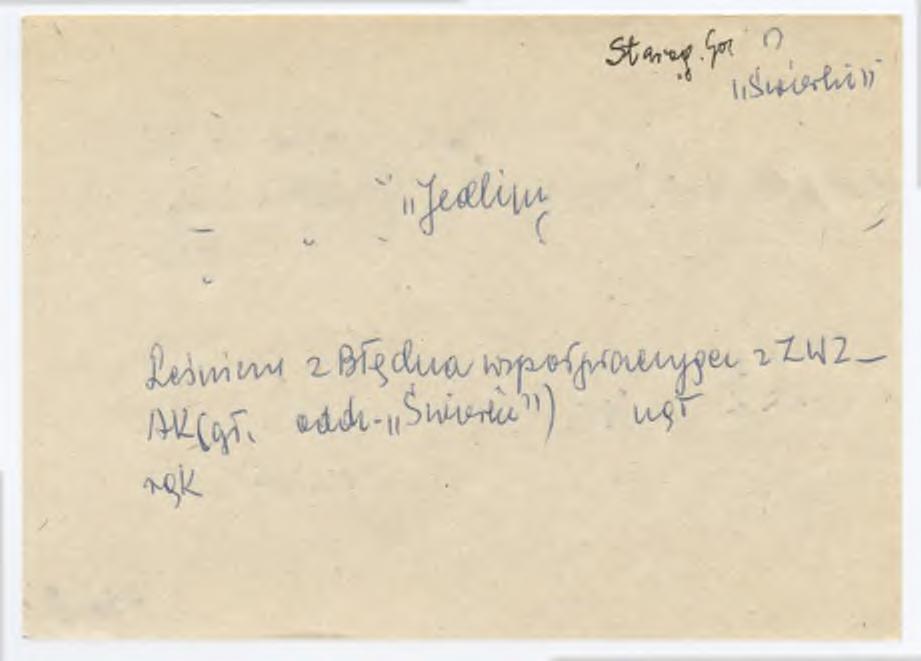 Starog. Gd
"Świerki"
"Jedliną
Leśniczy z Błędna współpracujący z ZWZ-
AK (gł. oddz. "Świerki")